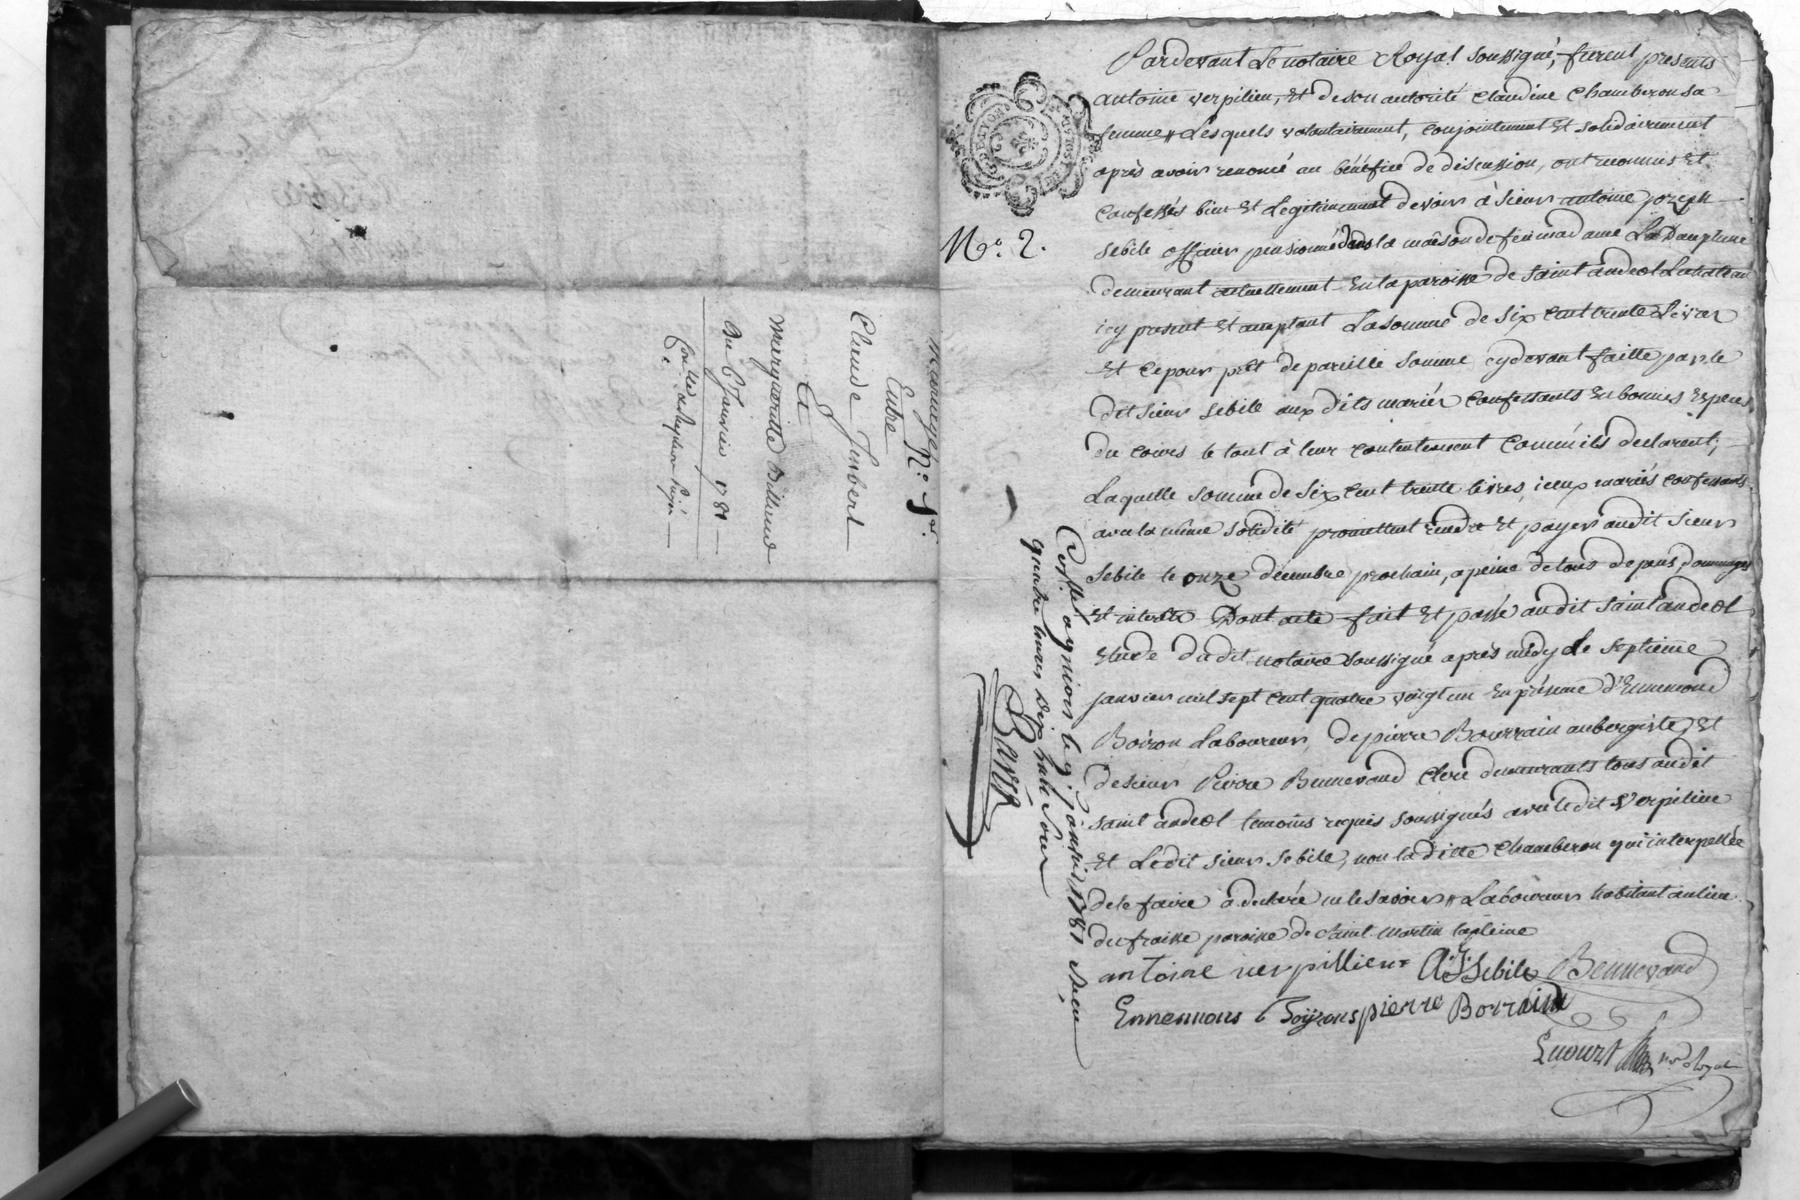 Mariage N.o 1er.
Entre
Claude Jmbert
Et
Margueritte Billiend
Du 6 Janvier 1781
Con.llé
Pardevant Le notaire Royal soussigné, furent presents
antoine verpilieu, Et de son autorité Claudine Chamberon sa
femme // Lesquels volontairement, conjointement Et solidairement
après avoir renoncé au bénéfice de discussion, ont reconnus Et
confessés bien Et Legitimement devoir à sieur antoine joseph
N.o 2.
sebile officier pensionné dans la maison de feu madame La Dauphine
demeurant actuellement En la paroisse de saint andeol Lechateau
icy present Et acceptant La somme de six cent trente Livres
Et ce pour prêt de pareille somme cydevant faitte par le
dit sieur sebile aux dits mariés confessants En bonnes Espèces
du cours le tout à leur contentement comme ils declarent;
Laquelle somme de six cent trente livres, iceux mariés confessants
avec la même solidité promettent rendre Et payer audit sieur
sebile le onze décembre prochain, a peine de tous depens, dommages
Et interets Dont acte fait Et passé audit saint andeol
Etude dudit notaire soussigné après midy Le septieme
janvier mil sept cent quatre vingt un En présence d'Ennemond
Boiron Laboureur, de pierre Bourrain aubergiste, Et
de sieur Pierre Bennevand clerc demeurants tous audit
saint andeol temoins requis soussignés avec le dit Verpilieu
Et Ledit sieur sebile, non la ditte Chamberon qui interpellée
de le faire a declaré ne le savoir // Laboureur habitant au lieu
du fraisse paroisse de saint martin laplaine
antoine verpillieu A: J: Sebile Bennevand
Ennemons Boÿrons pierre Borrain
Guourt nre Royal
Con.llé a gniors le 9. janvier 1781 reçu
quatre livres dix huit sous